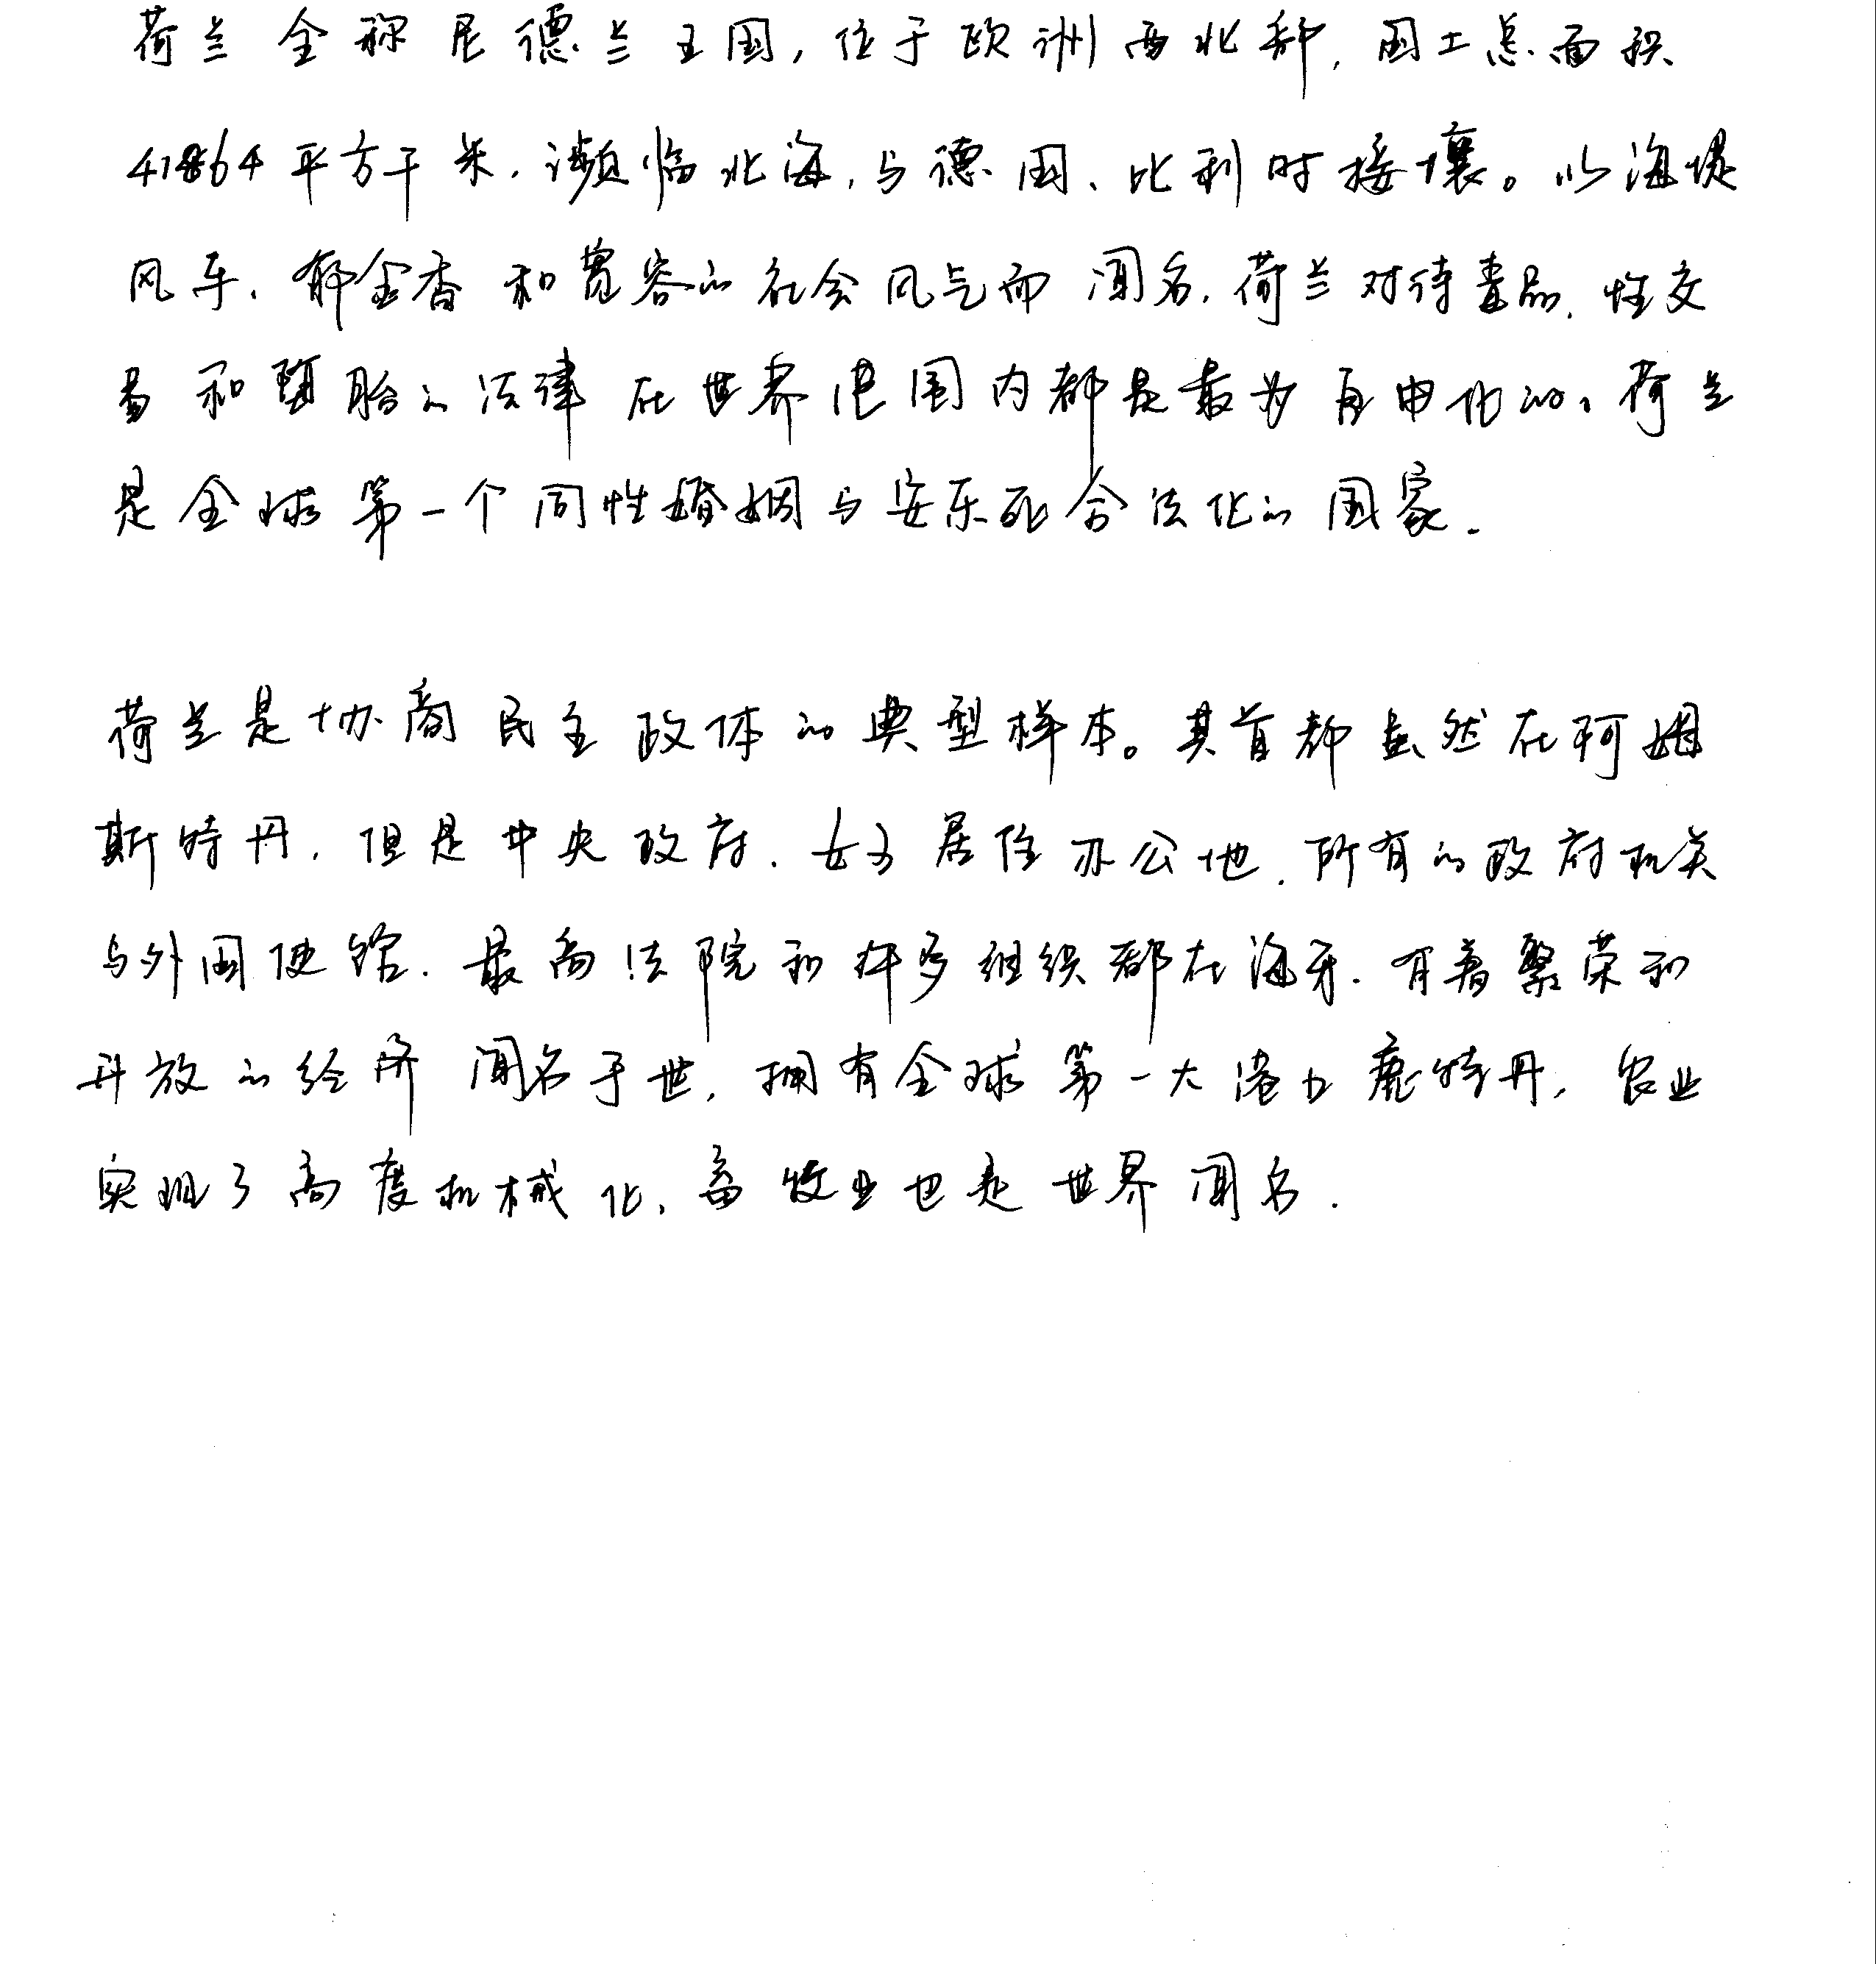 荷兰全称尼德兰王国,位于欧洲西北部,国土总面积
41864平方千米,濒临北海,与德国、比利时接壤。以海堤
风车、郁金香和宽容的社会风气而闻名,荷兰对待毒品、性交
易和堕胎的法律在世界范围内都是最为自由化的,荷兰
是全球第一个同性婚姻与安乐死合法化的国家.
荷兰是协商民主政体的典型样本。其首都虽然在阿姆
斯特丹,但是中央政府、女王居住办公地、所有的政府机关
与外国使馆、最高法院和许多组织都在海牙.有着繁荣和
开放的经济闻名于世,拥有全球第一大港口鹿特丹,农业
实现了高度机械化,畜牧业也是世界闻名.